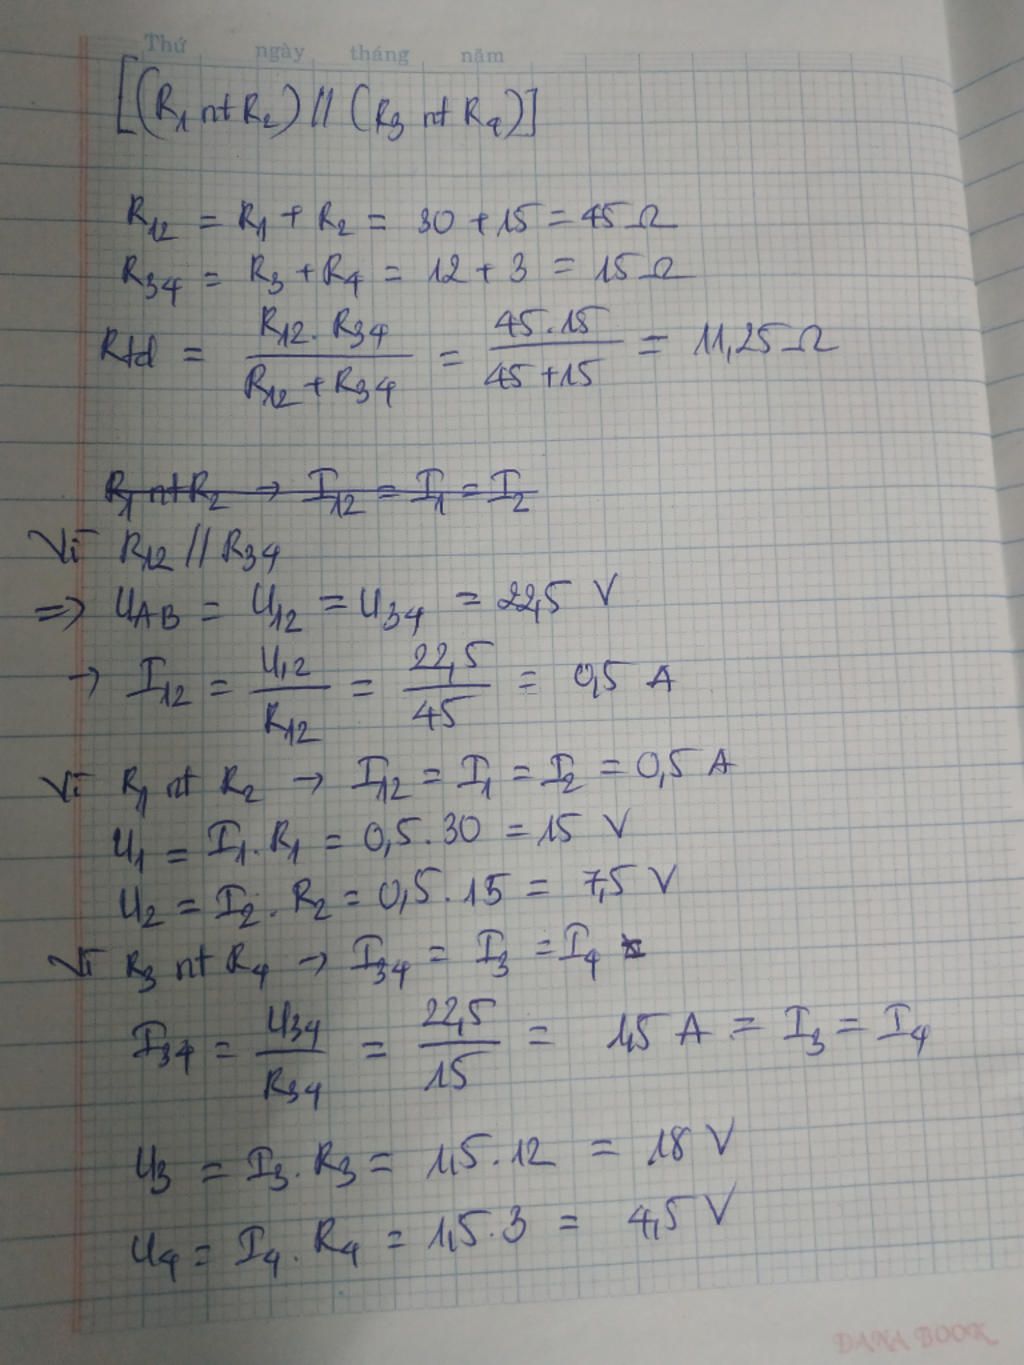 Thứ ngày tháng năm
[(R₁ nt R₂) // (R₃ nt R₄)]
R₁₂ = R₁ + R₂ = 30 + 15 = 45 Ω
R₃₄ = R₃ + R₄ = 12 + 3 = 15 Ω
Rtd = (R₁₂ . R₃₄)/(R₁₂ + R₃₄) = (45 . 15)/(45 + 15) = 11,25 Ω
R₁ nt R₂ → I₁₂ = I₁ = I₂
Vì R₁₂ // R₃₄
=> U_AB = U₁₂ = U₃₄ = 22,5 V
→ I₁₂ = U₁₂/R₁₂ = 22,5/45 = 0,5 A
Vì R₁ nt R₂ → I₁₂ = I₁ = I₂ = 0,5 A
U₁ = I₁ . R₁ = 0,5 . 30 = 15 V
U₂ = I₂ . R₂ = 0,5 . 15 = 7,5 V
Vì R₃ nt R₄ → I₃₄ = I₃ = I₄
I₃₄ = U₃₄/R₃₄ = 22,5/15 = 1,5 A = I₃ = I₄
U₃ = I₃ . R₃ = 1,5 . 12 = 18 V
U₄ = I₄ . R₄ = 1,5 . 3 = 4,5 V
DANA BOOK